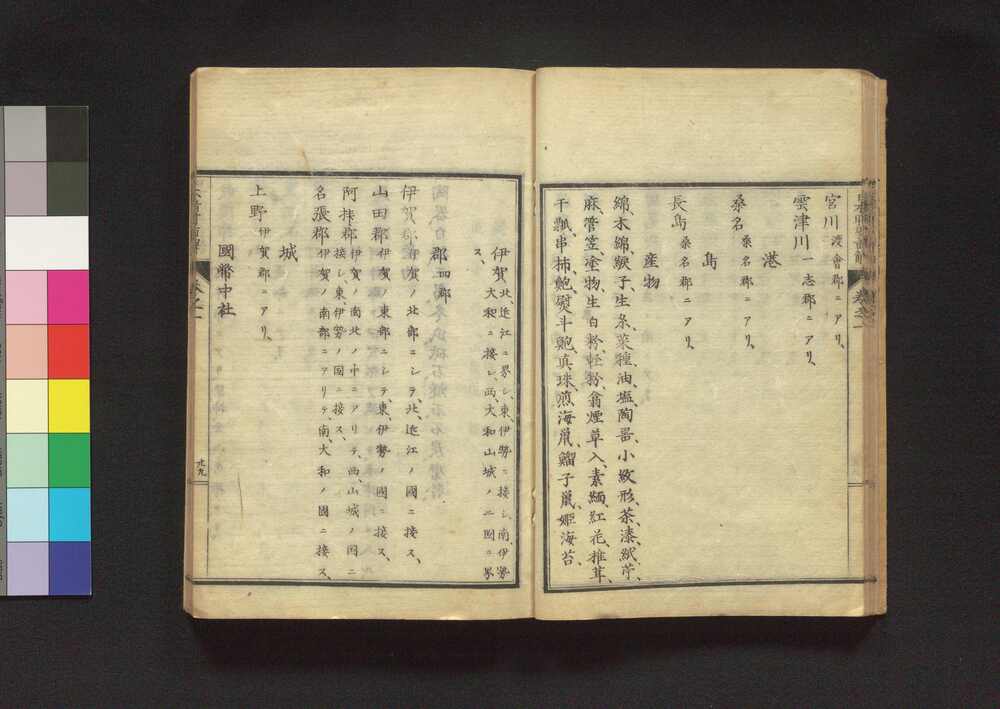 宮川 渡會郡ニアリ、
雲津川 一志郡ニアリ、
港
桑名 桑名郡ニアリ、
島
長島 桑名郡ニアリ、
産物
綿、木綿、綟子、生糸、菜種、油、塩、陶器、小紋形、茶、漆、紙、芹、
麻、菅笠、塗物、生白粉、軽粉、翁煙草入、素麺、紅花、椎茸、
干瓢、串柿、鮑、熨斗鮑、真珠、煎海鼠、鰡子、海鼠、姫海苔、
伊賀 北、近江ニ界シ、東、伊勢ニ接シ、南、伊勢
大和ニ接シ、西、大和山城ノ二國ニ界
ス、
郡 四郡
伊賀郡 伊賀ノ北部ニシテ、北、近江ノ國ニ接ス、
山田郡 伊賀ノ東部ニシテ、東、伊勢ノ國ニ接ス、
阿拝郡 伊賀ノ南北ノ中ニアリテ、西、山城ノ國ニ
接シ、東、伊勢ノ國ニ接ス、
名張郡 伊賀ノ南部ニアリテ、南、大和ノ國ニ接ス、
城
上野 伊賀郡ニアリ、
國幣中社
卷之一
廿九